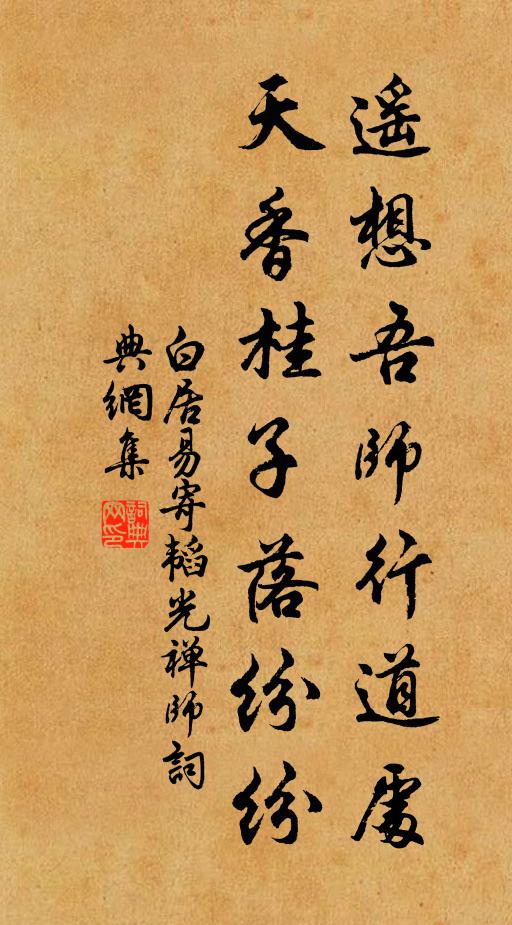 遥想吾師行道處
天香桂子落紛紛
白居易寄韬光禅師詞
典網集
詞典
网印